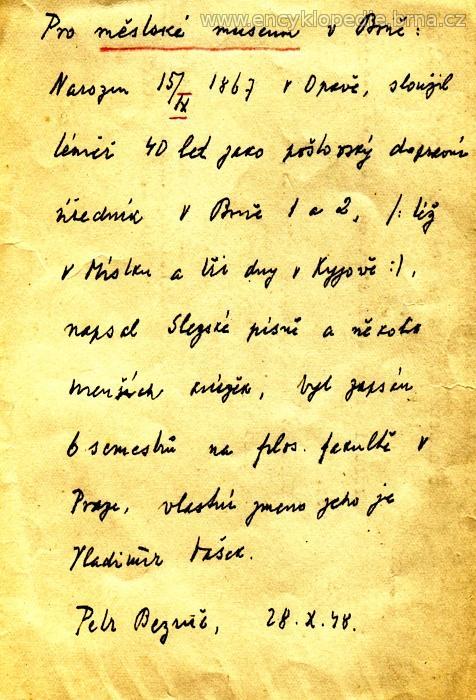 www.encyklopedie.brna.cz
Pro městské museum v Brně:
Narozen 15/IX 1867 v Opavě, sloužil
téměř 40 let jako poštovský dopravní
úředník v Brně 1 a 2, /: též
v Místku a tři dny v Kyjově :/,
napsal Slezské písně a několik
menších knížek, byl zapsán
6 semestrů na filos. fakultě v
Praze, vlastní jmeno jeho je
Vladimír Vašek.
Petr Bezruč, 28.X.48.